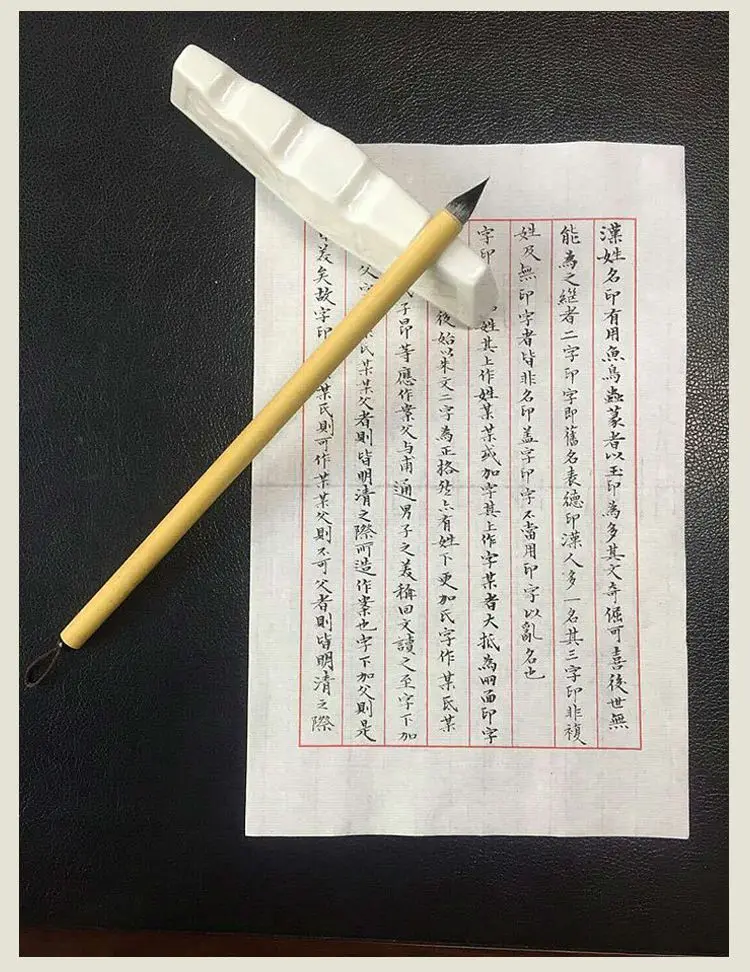 漢姓名印有用魚鳥蟲篆者以玉印為多其文奇倔可喜後世無
能為之繼者二字印字即舊名表德印漢人多一名其三字印非複
姓及無印字者皆非名印盖字印字不當用印字以亂名也
字印 姓其上作姓某某或加字其上作字某者大抵為四面印字
後始以朱文二字為正格然亦有姓下更加氏字作某氏某
子昂等應作案父与甫通男子之美稱回文讀之至字下加
父 氏某某父者則皆明清之際所造作案也字下加父則是
美矣故字印 某氏則可作某某父則不可父者則皆明清之際